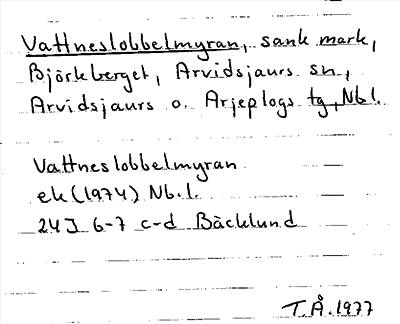 Vattneslobbelmyran, sank mark,
Björkberget, Arvidsjaurs sn,
Arvidsjaurs o. Arjeplogs tg, Nb l.
Vattneslobbelmyran
ek (1974) Nb. l.
24J 6-7 c-d Bäcklund
T.Å. 1977